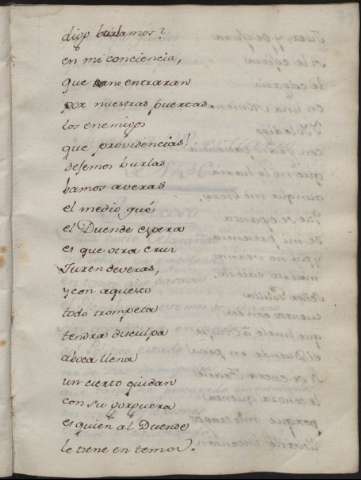 digo burlamos?
en mi conciencia,
que entraran
por nuestras puertas.
los enemigos
que providencias!
dejemos burlas
bamos a veras
el medio que
el Duende espera
es que otra cruz
Juren deveras,
y con aquesto
todo trompeta
tendra disculpa
a boca llena
un cierto quidan
con su
es quien al Duende
le tiene en temor.